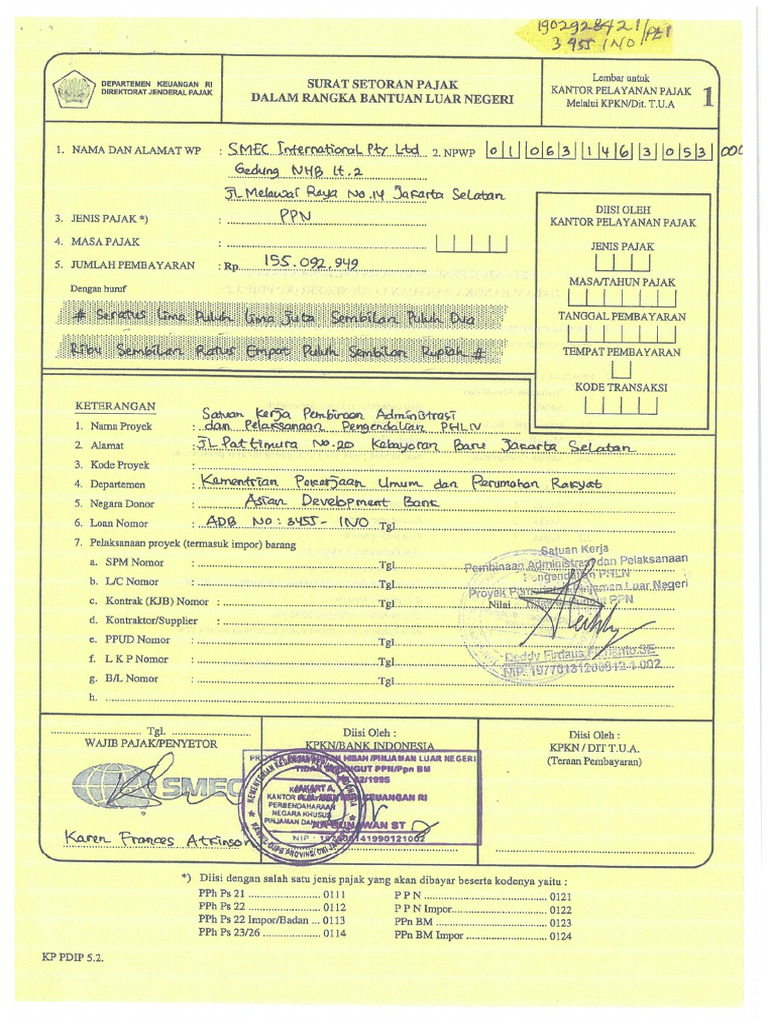 1902928421/PE1
3455 INO
DEPARTEMEN KEUANGAN RI
DIREKTORAT JENDERAL PAJAK
SURAT SETORAN PAJAK
DALAM RANGKA BANTUAN LUAR NEGERI
Lembar untuk
KANTOR PELAYANAN PAJAK
Melalui KPKN/Dit. T.U.A
1
1. NAMA DAN ALAMAT WP : SMEC International Pty Ltd 2. NPWP 01 063 146 3 053 000
Gedung NHB Lt.2
Jl. Melawai Raya No.14 Jakarta Selatan
3. JENIS PAJAK *) : PPN
4. MASA PAJAK :
5. JUMLAH PEMBAYARAN : Rp. 155.092.949
Dengan huruf
# Seratus Lima Puluh Lima Juta Sembilan Puluh Dua
Ribu Sembilan Ratus Empat Puluh Sembilan Rupiah #
DIISI OLEH
KANTOR PELAYANAN PAJAK
JENIS PAJAK
MASA/TAHUN PAJAK
TANGGAL PEMBAYARAN
TEMPAT PEMBAYARAN
KODE TRANSAKSI
KETERANGAN
1. Nama Proyek : Satuan Kerja Pembinaan Administrasi
dan Pelaksanaan Pengendalian PHLN
2. Alamat : Jl. Pattimura No.20 Kebayoran Baru Jakarta Selatan
3. Kode Proyek :
4. Departemen : Kementrian Pekerjaan Umum dan Perumahan Rakyat
5. Negara Donor : Asian Development Bank
6. Loan Nomor : ADB No: 3455 - INO Tgl
7. Pelaksanaan proyek (termasuk impor) barang
a. SPM Nomor : Tgl
b. L/C Nomor : Tgl
c. Kontrak (KJB) Nomor : Tgl Nilai
d. Kontraktor/Supplier :
e. PPUD Nomor : Tgl
f. L K P Nomor : Tgl
g. B/L Nomor : Tgl
h.
Satuan Kerja
Pembinaan Administrasi dan Pelaksanaan
Pengendalian PHLN
Pinjaman Luar Negeri
PPN
Deddy
Tgl.
WAJIB PAJAK/PENYETOR
SMEC
Karen Frances Atkinson
Diisi Oleh :
KPKN/BANK INDONESIA
HIBAH/PINJAMAN LUAR NEGERI
PPN/Ppn BM
JAKARTA,
KEUANGAN RI
KANTOR PELAYANAN
PERBENDAHARAAN
NEGARA KHUSUS
PINJAMAN DAN
Diisi Oleh :
KPKN / DIT T.U.A.
(Teraan Pembayaran)
*) Diisi dengan salah satu jenis pajak yang akan dibayar beserta kodenya yaitu :
PPh Ps 21 0111 P P N 0121
PPh Ps 22 0112 P P N Impor 0122
PPh Ps 22 Impor/Badan 0113 PPn BM 0123
PPh Ps 23/26 0114 PPn BM Impor 0124
KP PDIP 5.2.